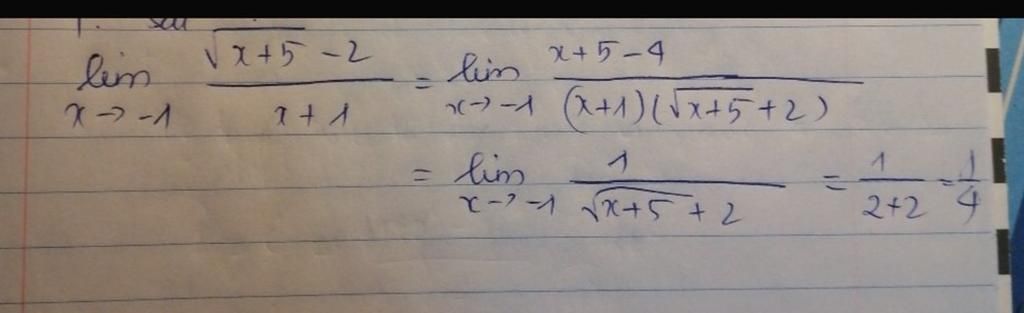 lim x→-1 (√(x+5) -2)/(x+1) = lim x→-1 (x+5-4)/((x+1)(√(x+5)+2))
= lim x→-1 1/(√(x+5)+2) = 1/(2+2) = 1/4